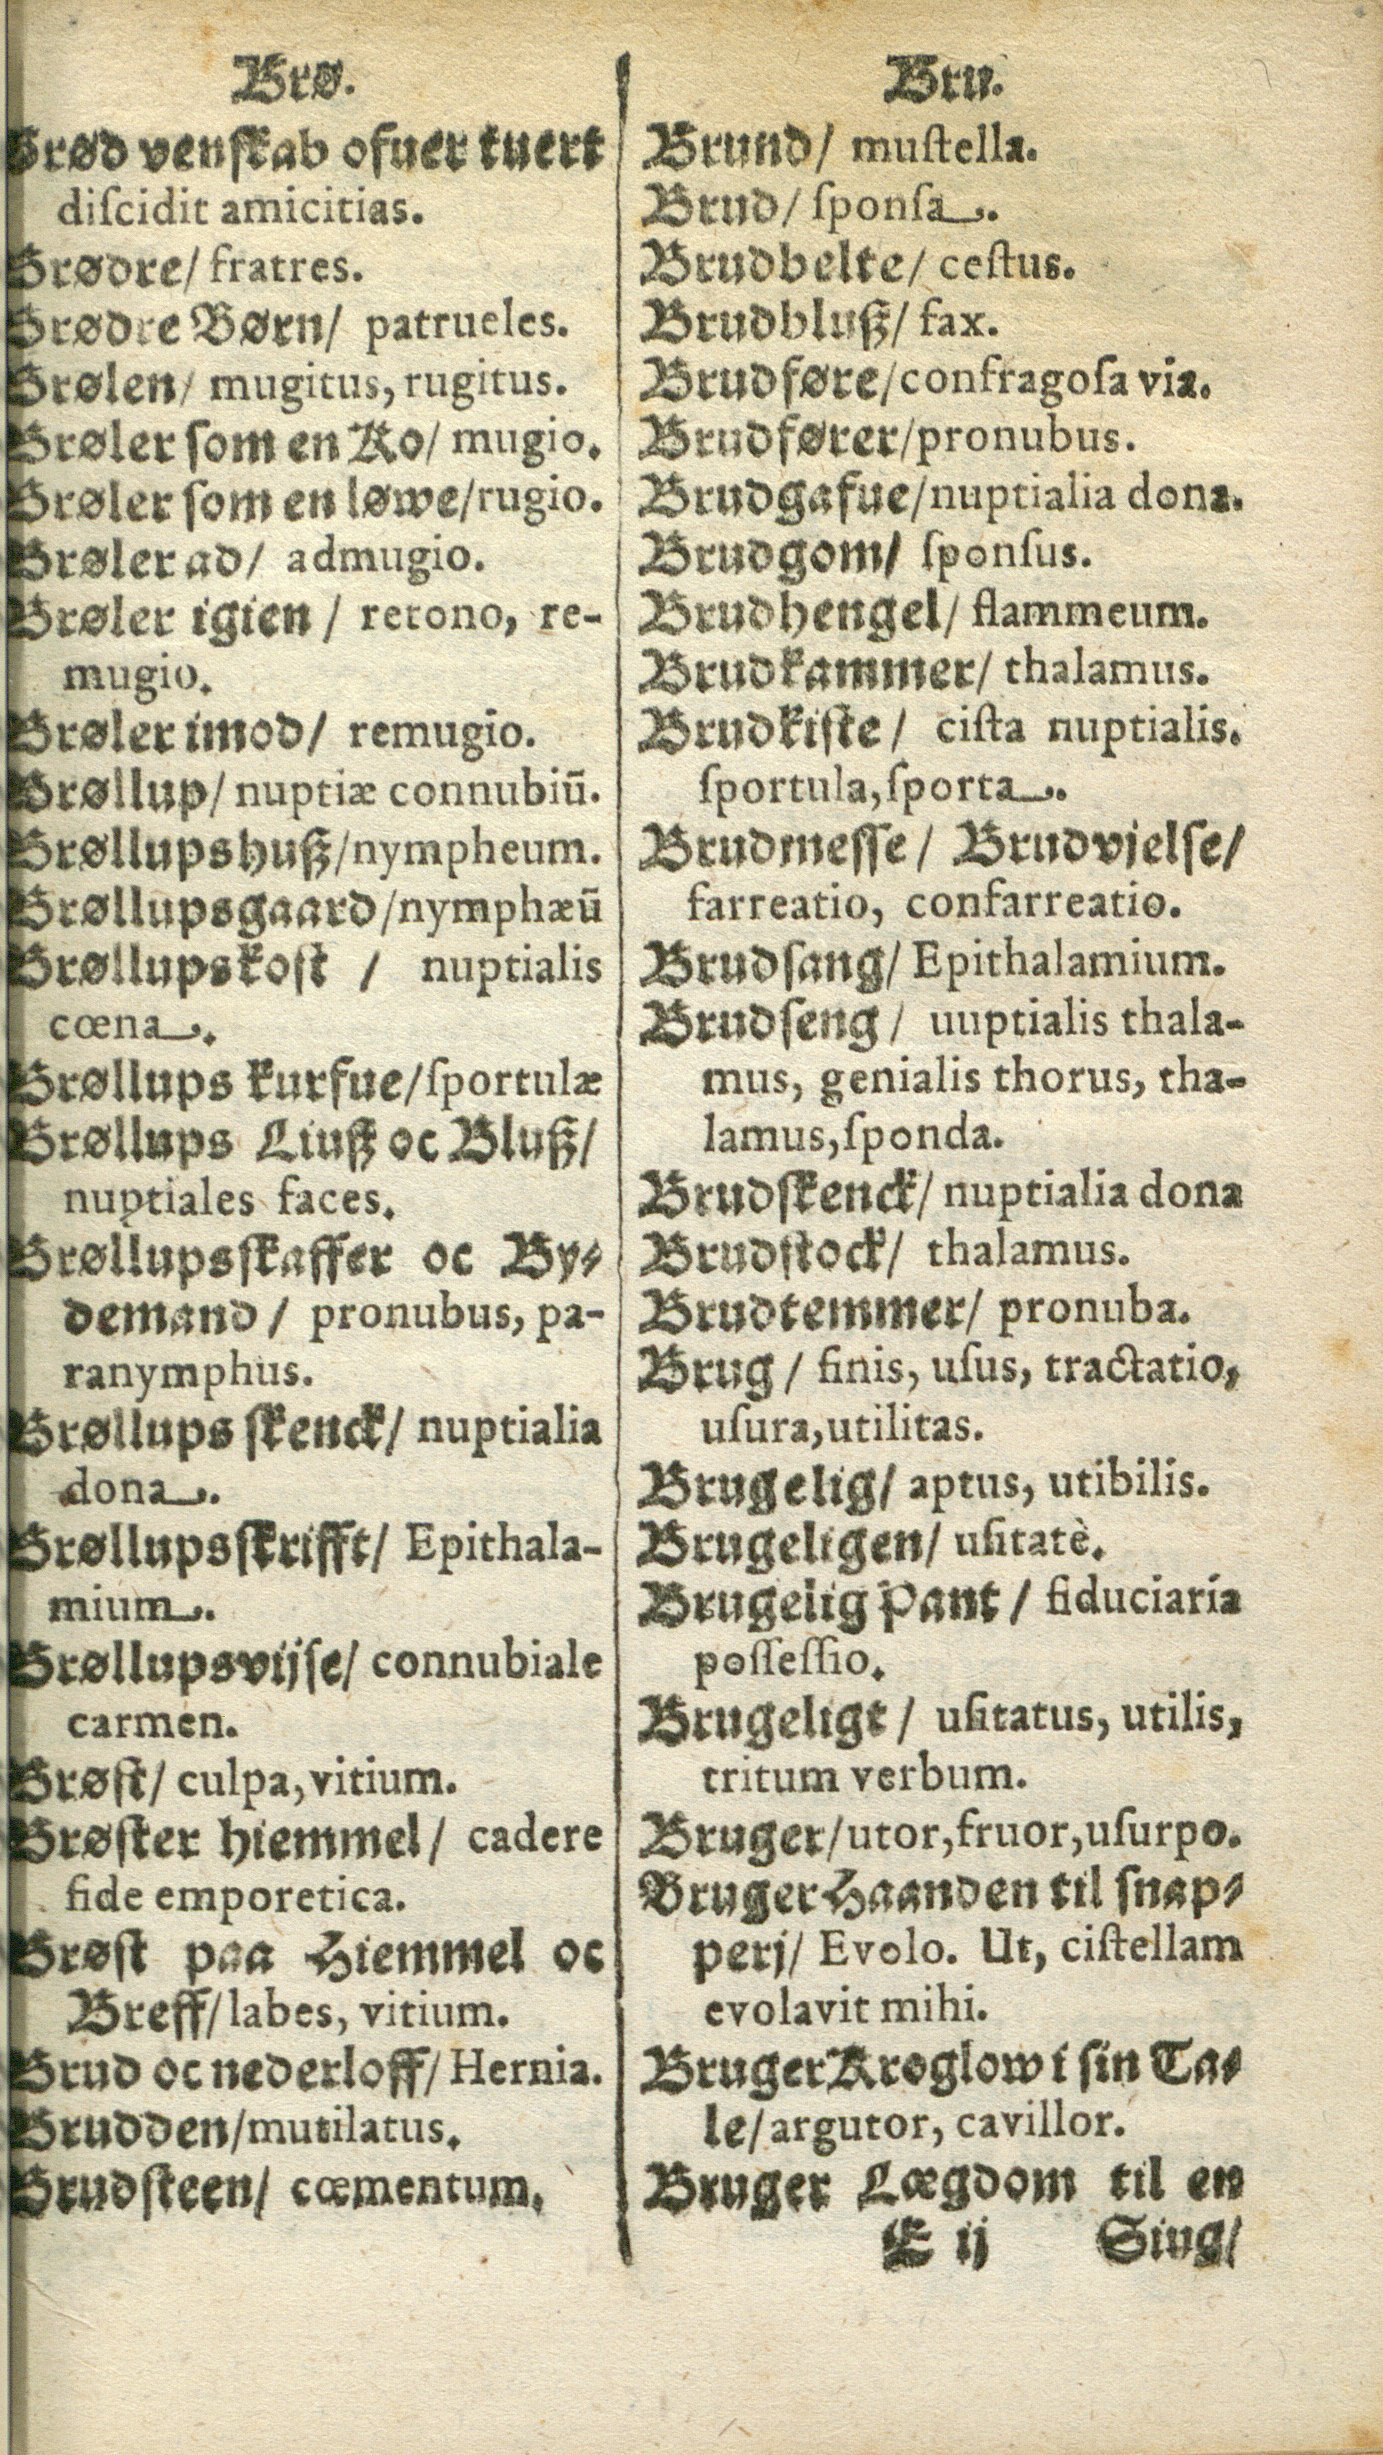 Brø.
Brød venſkab ofuer tuert
diſcidit amicitias.
Brødre/ fratres.
Brødre Børn/ patrueles.
Brølen/ mugitus, rugitus.
Brøler ſom en Ko/ mugio.
Brøler ſom en løwe/rugio.
Brøler ad/ admugio.
Brøler igien / retono, re-
mugio.
Brøler imod/ remugio.
Brøllup/ nuptiæ connubiū.
Brøllupshuß/nympheum.
Brøllupsgaard/nymphæū
Brøllupskoſt / nuptialis
cœna.
Brøllups kurfue/ſportulæ
Brøllups Liuß oc Bluß/
nuptiales faces.
Brøllupsſkaffer oc By-
demand / pronubus, pa-
ranymphus.
Brøllups ſkenck/ nuptialia
dona.
Brøllupsſkrifft/ Epithala-
mium.
Brøllupsvijſe/ connubiale
carmen.
Brøſt/ culpa, vitium.
Brøſter hiemmel/ cadere
fide emporetica.
Brøſt paa Hiemmel oc
Breff/labes, vitium.
Brud oc nederloff/ Hernia.
Brudden/mutilatus.
Brudſteen/ cœmentum.
Bru.
Brund/ muſtella.
Brud/ ſponſa.
Brudbelte/ ceſtus.
Brudbluß/ fax.
Brudføre/confragoſa via.
Brudfører/pronubus.
Brudgafue/nuptialia dona.
Brudgom/ ſponſus.
Brudhengel/ flammeum.
Brudkammer/ thalamus.
Brudkiſte/ ciſta nuptialis.
ſportula, ſporta.
Brudmeſſe/ Brudvielſe/
farreatio, confarreatio.
Brudſang/ Epithalamium.
Brudſeng/ uuptialis thala-
mus, genialis thorus, tha-
lamus, ſponda.
Brudſkenck/ nuptialia dona
Brudſtock/ thalamus.
Brudtemmer/ pronuba.
Brug / finis, uſus, tractatio,
uſura, utilitas.
Brugelig/ aptus, utibilis.
Brugeligen/ uſitatè.
Brugelig Pant / fiduciaria
poſſeſſio.
Brugeligt / uſitatus, utilis,
tritum verbum.
Bruger/utor, fruor, uſurpo.
Bruger Haanden til ſnap-
peri/ Evolo. Ut, ciſtellam
evolavit mihi.
Bruger Kroglow i ſin Ta-
le/argutor, cavillor.
Bruger Lægdom til en
E ij Siug/